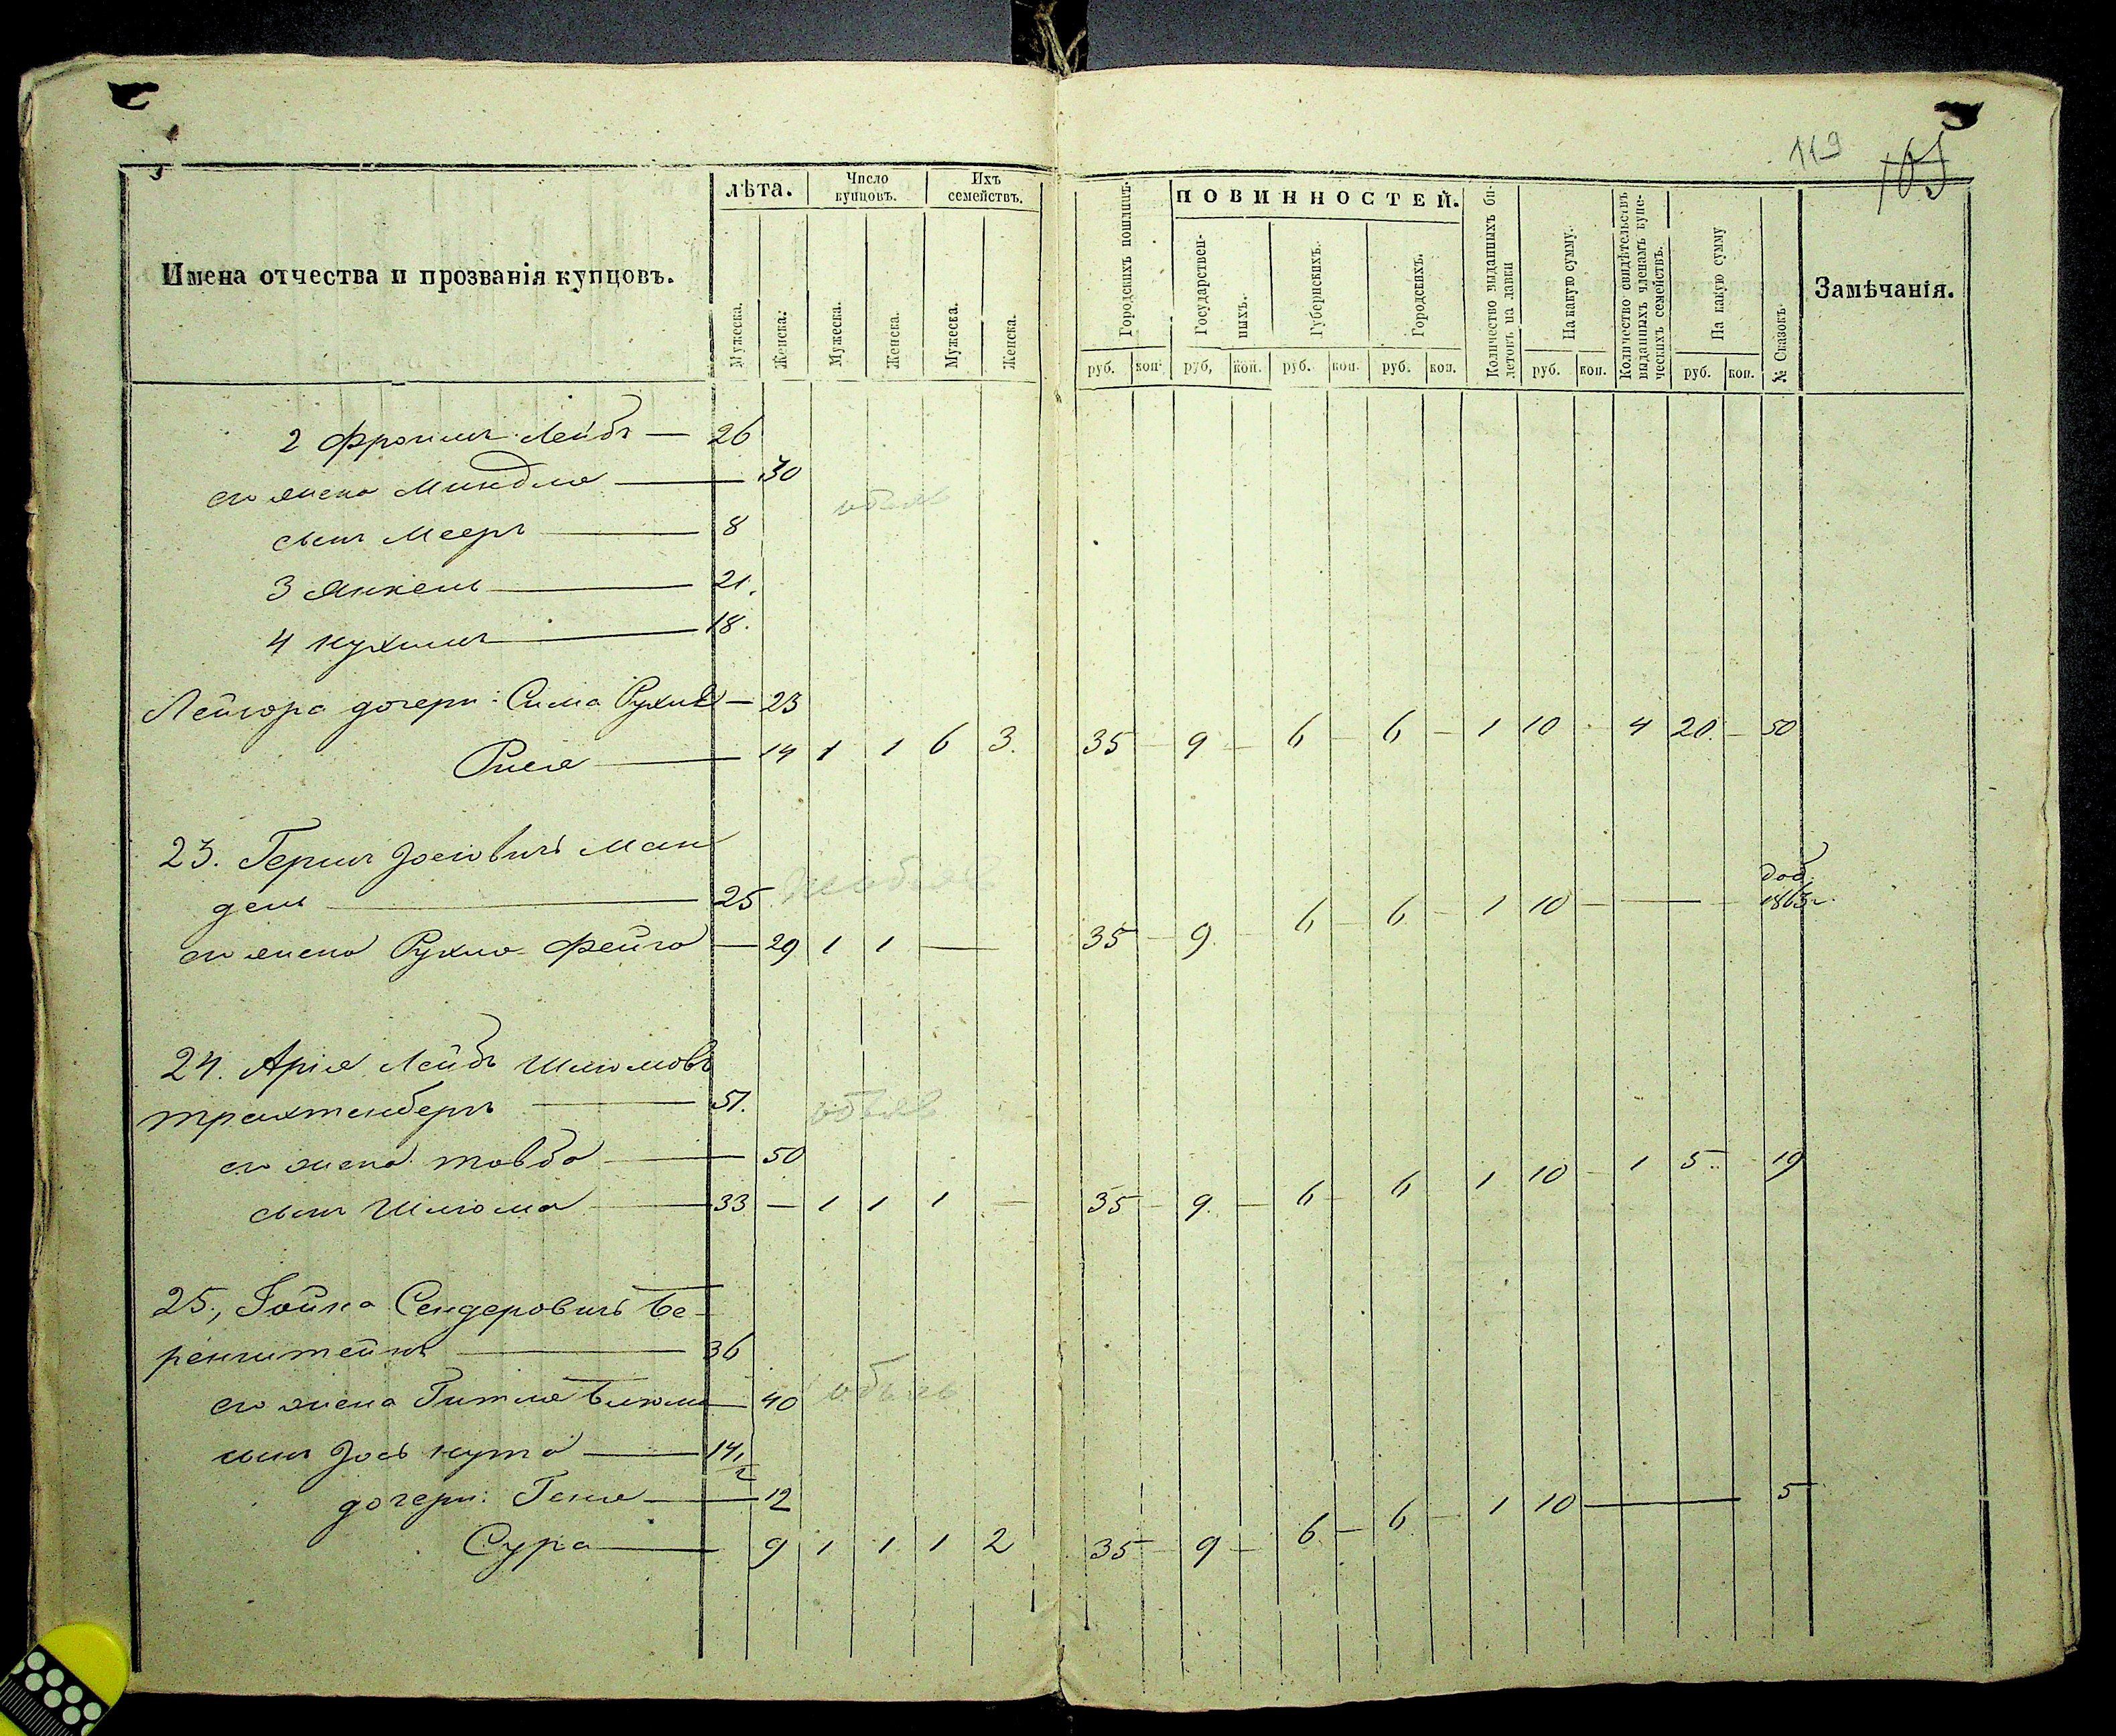 119 165
Имена отчества и прозванія купцовъ.
лѣта.
Число купцовъ.
Ихъ семействъ.
Мужеска. Женска. Мужеска. Женска. Мужеска. Женска.
Городскихъ пошлинъ.
ПОВИННОСТЕЙ.
Государственныхъ.
Губернскихъ.
Городскихъ.
Количество выданныхъ билетовъ на лавки
На какую сумму.
Количество свидѣтельствъ выданныхъ членамъ купеческихъ семействъ.
На какую сумму
№ Сказокъ
Замѣчанія.
руб. коп. руб. коп. руб. коп. руб. коп. руб. коп. руб. коп.
2 Фроимъ Лейбъ — 26
его жена Миндля — 30
сынъ Мееръ — 8
3 Янкель — 21.
4 Нухимъ — 18.
дочери: Сима Рухля — 23
Рися — 14 1 1 6 3. 35 — 9 — 6 — 6 — 1 10 4 20 — 50
23. Гершъ Іосіовичъ Ман
дель — 25
его жена Рухля Фейга — 29 1 1 — 35 — 9 — 6 — 6 — 1 10 — — доб. 1863 г.
24. Арія Лейбъ Шліомовъ
Трахтенбергъ — 51.
объяв
его жена Товба — 50
сынъ Шліома — 33 — 1 1 1 — 35 — 9. — 6 — 6 1 10 — 1 5 — 19
25., Гойна Сендеровичъ Бе-
ренштейнъ — 36
его жена Гитля Блюма — 40
объяв
сынъ Іось Нута — 14 1/2
дочери: Геня — 12
Сура — 9 1 1 1 2 35 — 9 — 6 — 6 — 1 10 — 5